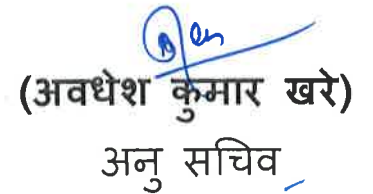 (अवधेश कुमार खरे)
अनु सचिव